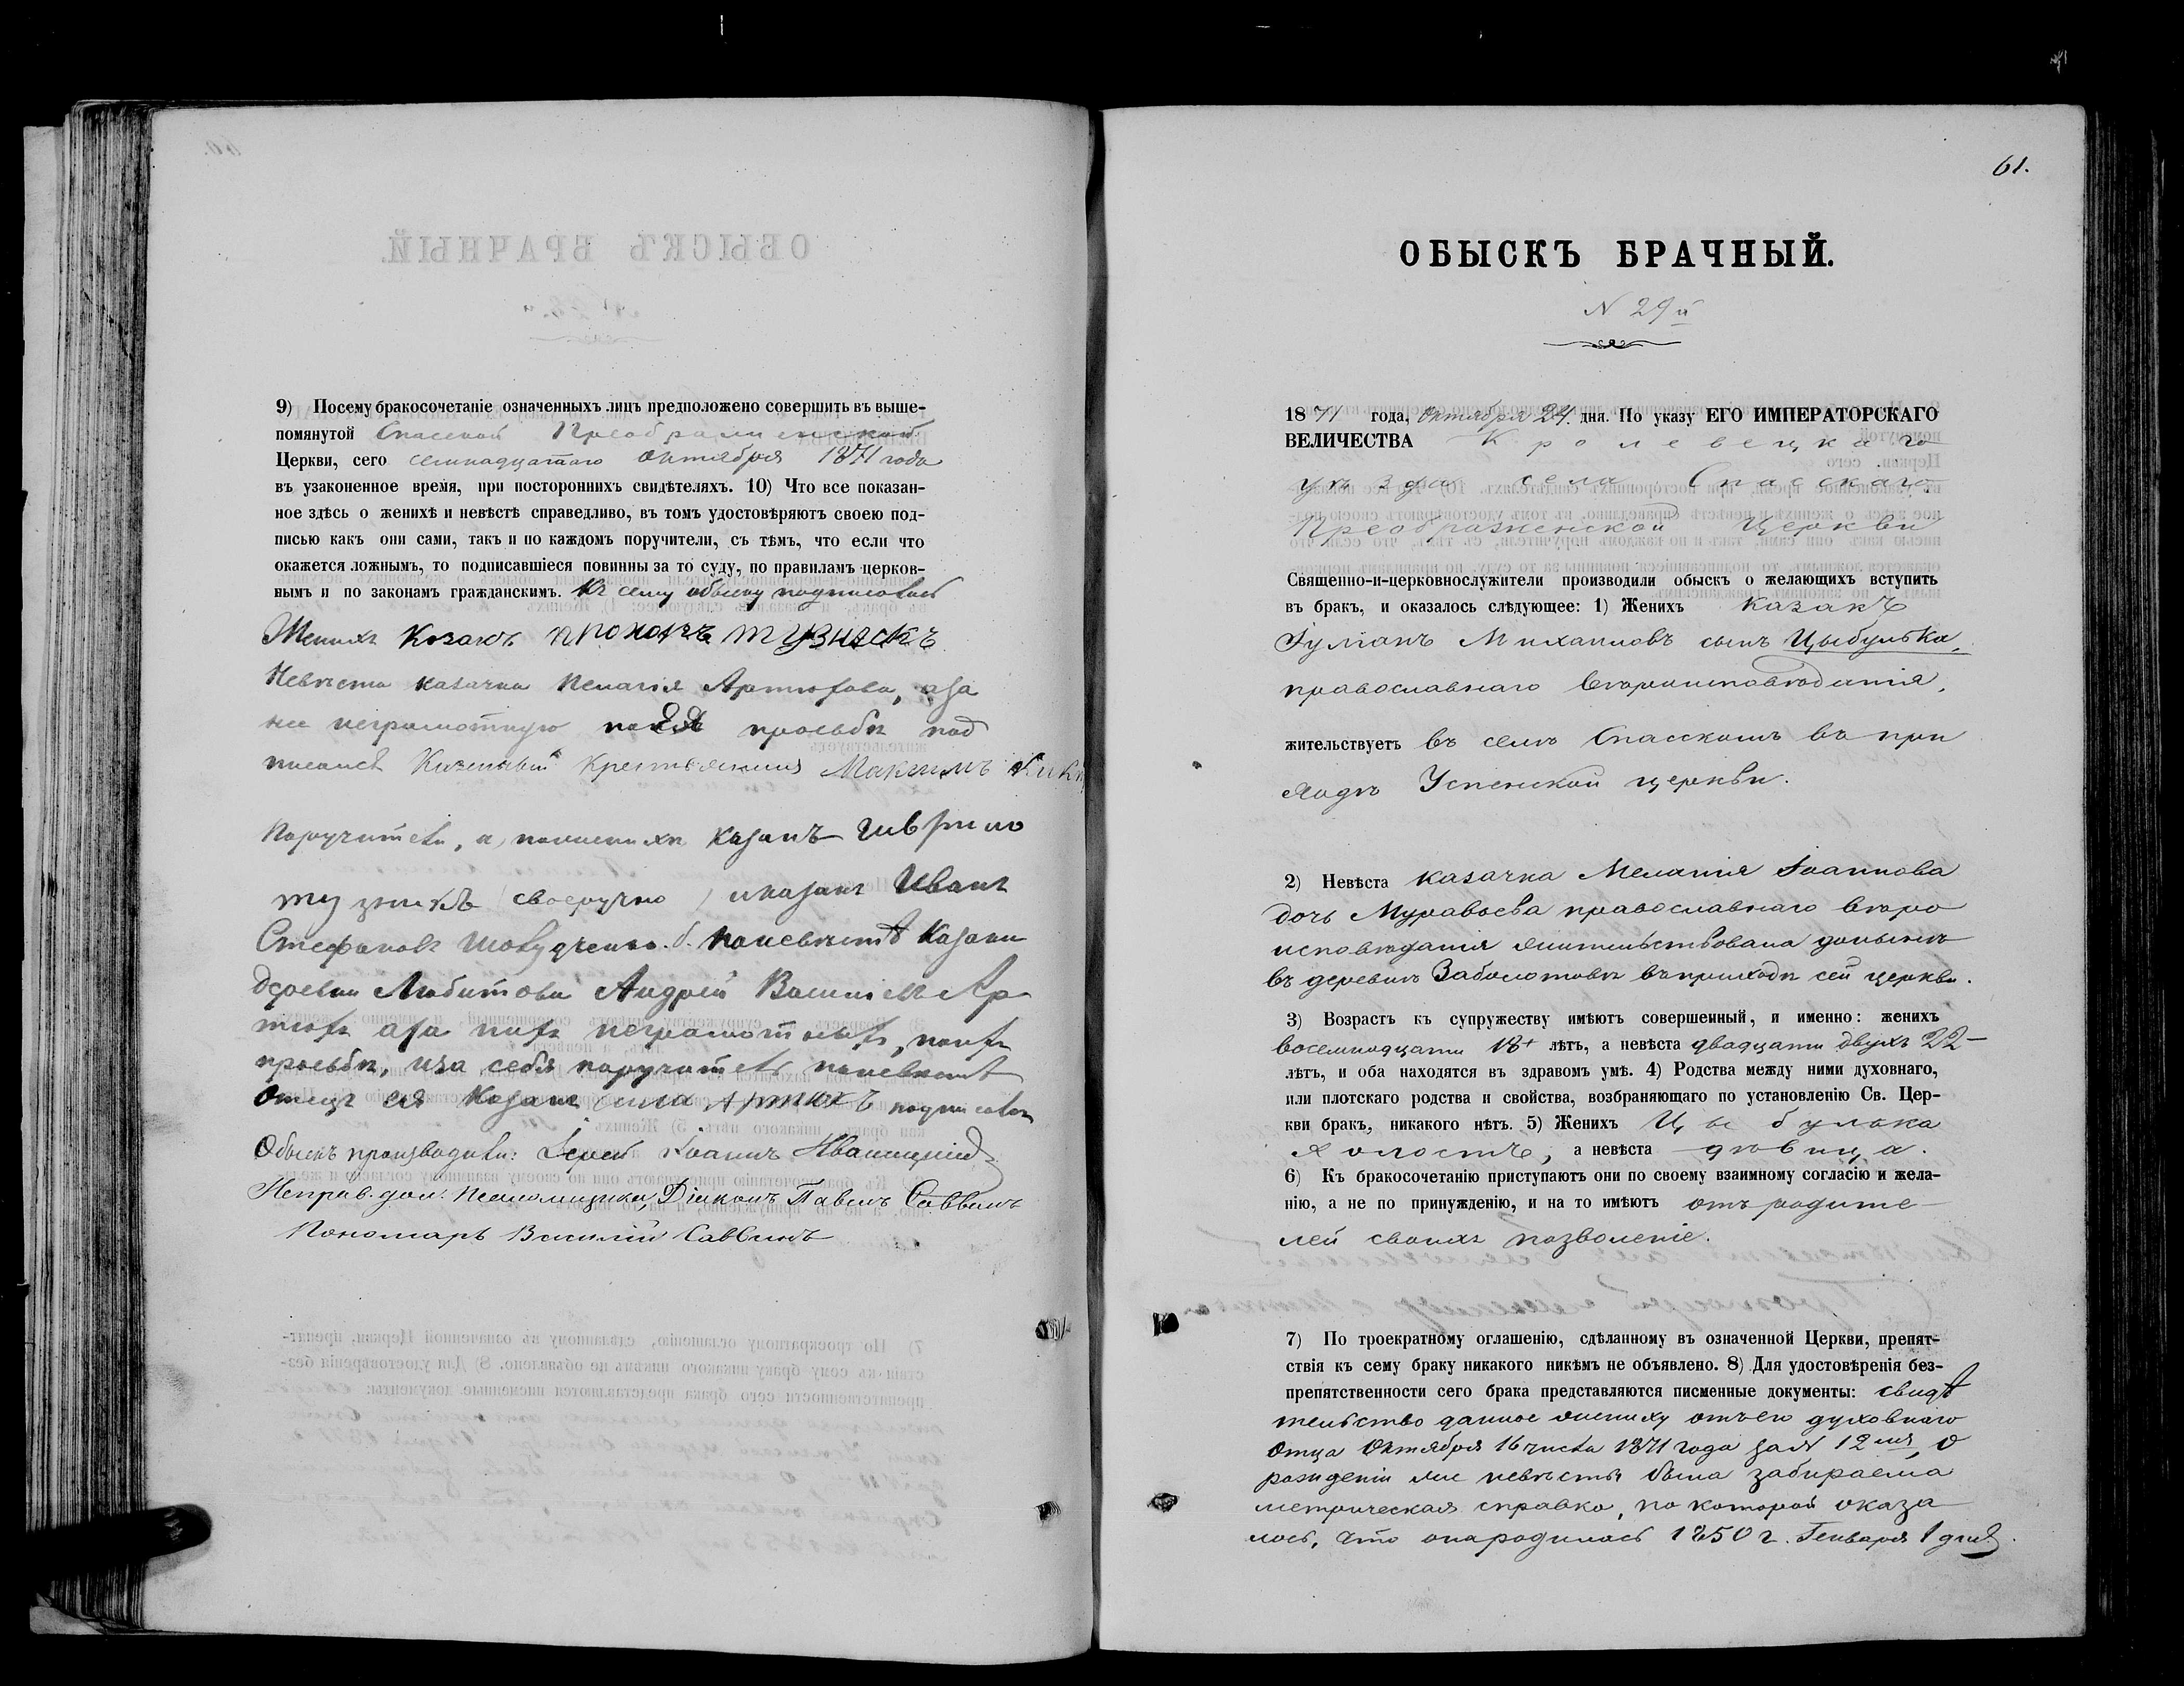 9) Посему бракосочетаніе означенныхъ лицъ предположено совершить въ выше-
помянутой Спасской Преображенской
Церкви, сего семнадцатаго октября 1871 года
въ узаконенное время, при постороннихъ свидѣтеляхъ. 10) Что все показан-
ное здѣсь о женихѣ и невѣстѣ справедливо, въ томъ удостовѣряютъ своею под-
писью какъ они сами, такъ и по каждомъ поручители, съ тѣмъ, что если что
окажется ложнымъ, то подписавшіеся повинны за то суду, по правиламъ церков-
нымъ и по законамъ гражданскимъ. Къ сему обыску подписались
Женихъ Козакъ прохоръ тузнекъ
Невѣста казачка Пелагія Артюхова, а за
нее неграмотную по ея просьбѣ под
писался крестьянинъ Максимъ
Поручители, а, по женихѣ казакъ гаврило
тузнекъ (своеручно) и казакъ Иванъ
Стефановъ б. по невѣстѣ Казаки
деревни Любитова Андрей Васильевъ Ар
тюхъ а за нихъ неграмотныхъ, по ихъ
просьбѣ, и за себя поручитель по невѣстѣ
отецъ ея Казакъ сила Артюхъ подписался
Обыскъ производили: Іерей Іоаннъ
Исправ. дол. Псаломщика, Діаконъ Павелъ Саввинъ
Пономарь Василій Саввинъ
61.
ОБЫСКЪ БРАЧНЫЙ.
N 29й
1871 года, Октября 24. дня. По указу ЕГО ИМПЕРАТОРСКАГО
ВЕЛИЧЕСТВА Кролевецкаго
уѣзда села Спасскаго,
Преображенской Церкви
Священно-и-церковнослужители производили обыскъ о желающихъ вступить
въ бракъ, и оказалось слѣдующее: 1) Женихъ казакъ
Іуліанъ Михаиловъ сынъ Цыбулька,
православнаго вѣроисповѣданія,
жительствуетъ въ селѣ Спасскомъ въ при
ходѣ Успенской церкви.
2) Невѣста казачка Меланія Іоаннова
дочь Муравьева православнаго вѣро
исповѣданія жительствовала донынѣ
въ деревнѣ Заболотовѣ въ приходѣ сей церкви.
3) Возрастъ къ супружеству имѣютъ совершенный, и именно: женихъ
восемнадцати 18+ лѣтъ, а невѣста двадцати двухъ 22-
лѣтъ, и оба находятся въ здравомъ умѣ. 4) Родства между ними духовнаго,
или плотскаго родства и свойства, возбраняющаго по установленію Св. Цер-
кви бракъ, никакого нѣтъ. 5) Женихъ Цыбулька
холостъ, а невѣста дѣвица.
6) Къ бракосочетанію приступаютъ они по своему взаимному согласію и жела-
нію, а не по принужденію, и на то имѣютъ отъ родите-
лей своихъ позволеніе.
7) По троекратному оглашенію, сдѣланному въ означенной Церкви, препят-
ствія къ сему браку никакого никѣмъ не объявлено. 8) Для удостовѣренія без-
препятственности сего брака представляются писменные документы: свидѣ
тельство данное жениху отъ его духовнаго
отца Октября 16 числа 1871 года за N 12мъ, о
рожденіи же невѣсты была забираема
метрическая справка, по которой оказа
лось, что она родилась 1850 г. Генваря 1 дня.